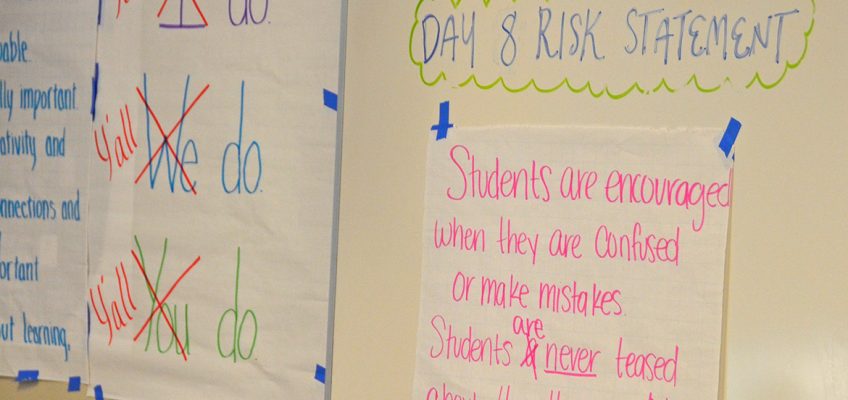 important
and
and
learning,
do.
Y'all We do.
Y'all You do.
DAY 8 RISK STATEMENT
Students are encouraged
when they are confused
or make mistakes.
Students are never teased